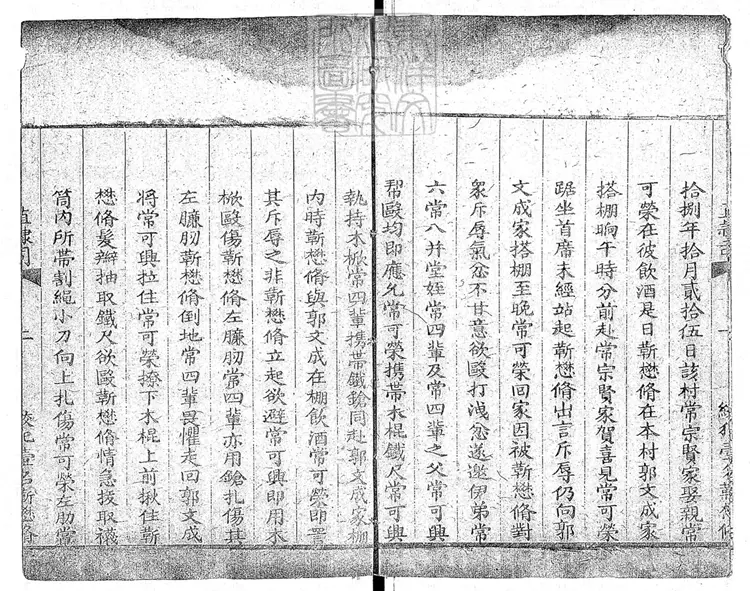 拾捌年拾月貳拾伍日該村常宗賢家娶親常
可榮在彼飲酒是日靳懋脩在本村郭文成家
搭棚晌午時分前赴常宗賢家賀喜見常可榮
踞坐首席未經站起靳懋脩出言斥辱仍向郭
文成家搭棚至晚常可榮回家因被靳懋脩對
眾斥辱氣忿不甘意欲毆打洩忿遂邀伊弟常
六常八并堂姪常四輩及常四輩之父常可興
幫毆均即應允常可榮携帶木棍鐵尺常可興
執持木楸常四輩携帶鐵鎗同赴郭文成家棚
內時靳懋脩與郭文成在棚飲酒常可榮即詈
其斥辱之非靳懋脩立起欲避常可興即用木
楸毆傷靳懋脩左臁肕常四輩亦用鎗扎傷其
左臁肕靳懋脩倒地常四輩畏懼走回郭文成
將常可興拉住常可榮撩下木棍上前揪住靳
懋脩髮辮抽取鐵尺欲毆靳懋脩情急拔取襪
筒內所帶割繩小刀向上扎傷常可榮左肋常
直隸司
二
絞犯壹名靳懋脩